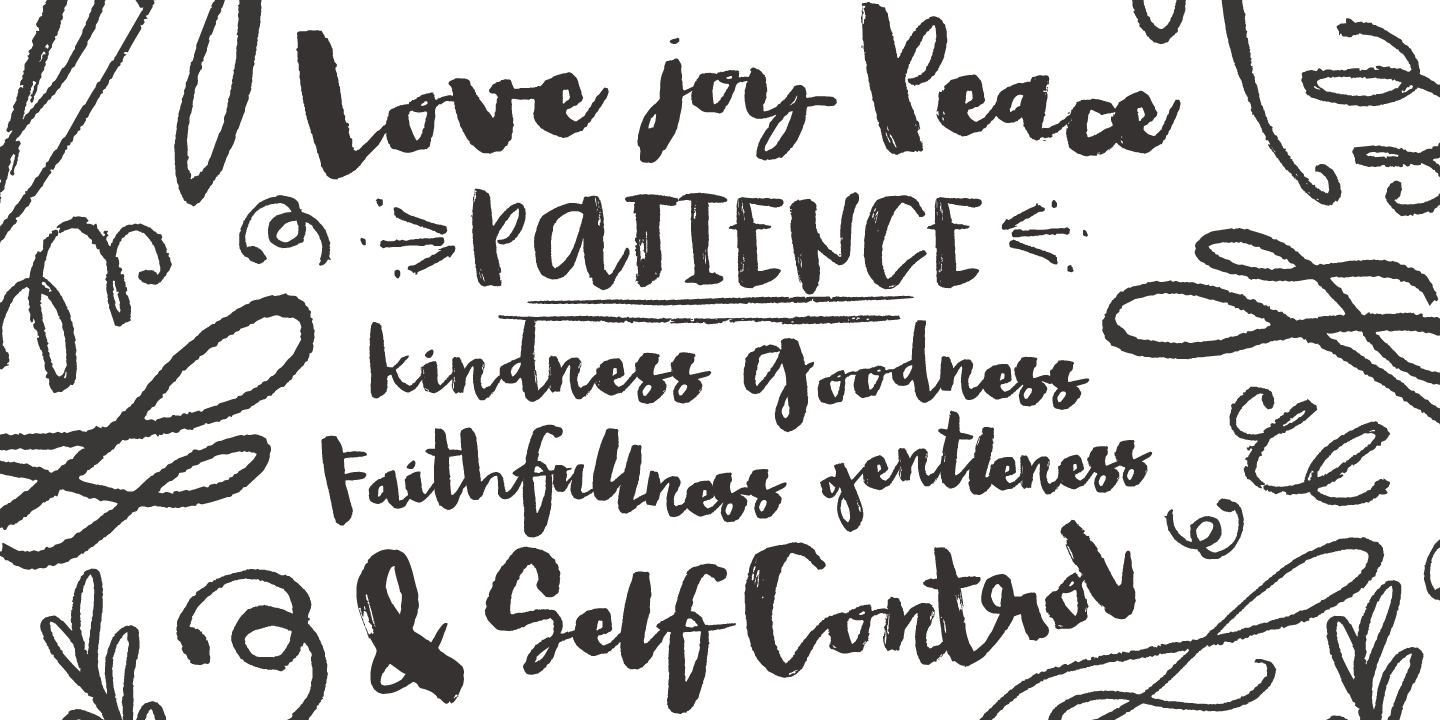 Love joy Peace
PATIENCE
kindness goodness
Faithfullness gentleness
& Self Control